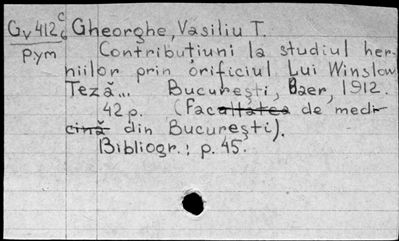 Gv412 c/6 Gheorghe, Vasiliu T.
Рум Contribuțiuni la studiul her-
niilor prin orificiul Lui Winslow.
Teză... București, Baer, 1912.
42 p. (Facultatea de medi-
cină din București).
Bibliogr.: p. 45.